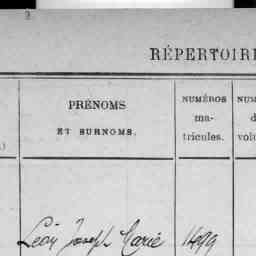 RÉPERTOIRE
PRÉNOMS
ET SURNOMS.
NUMÉROS
ma-
tricules.
Léon Joseph Marie 1499